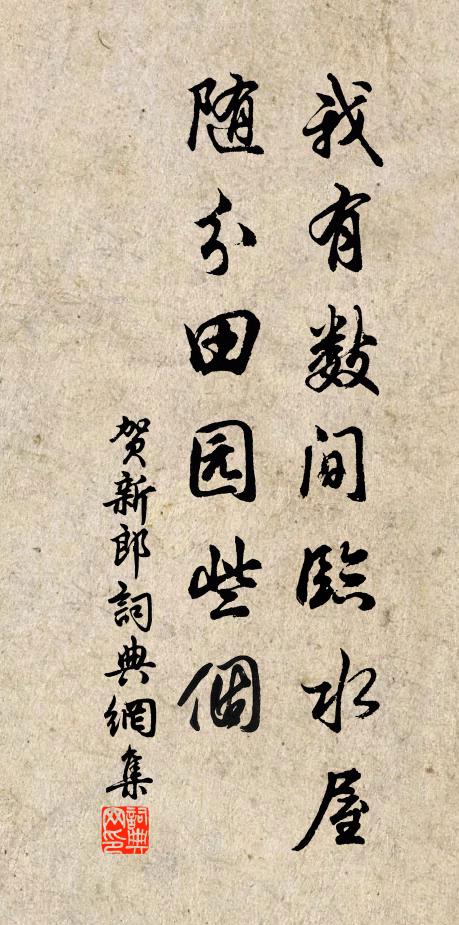 我有数间临水屋
随分田园些個
贺新郎詞典網集
詞典
网印